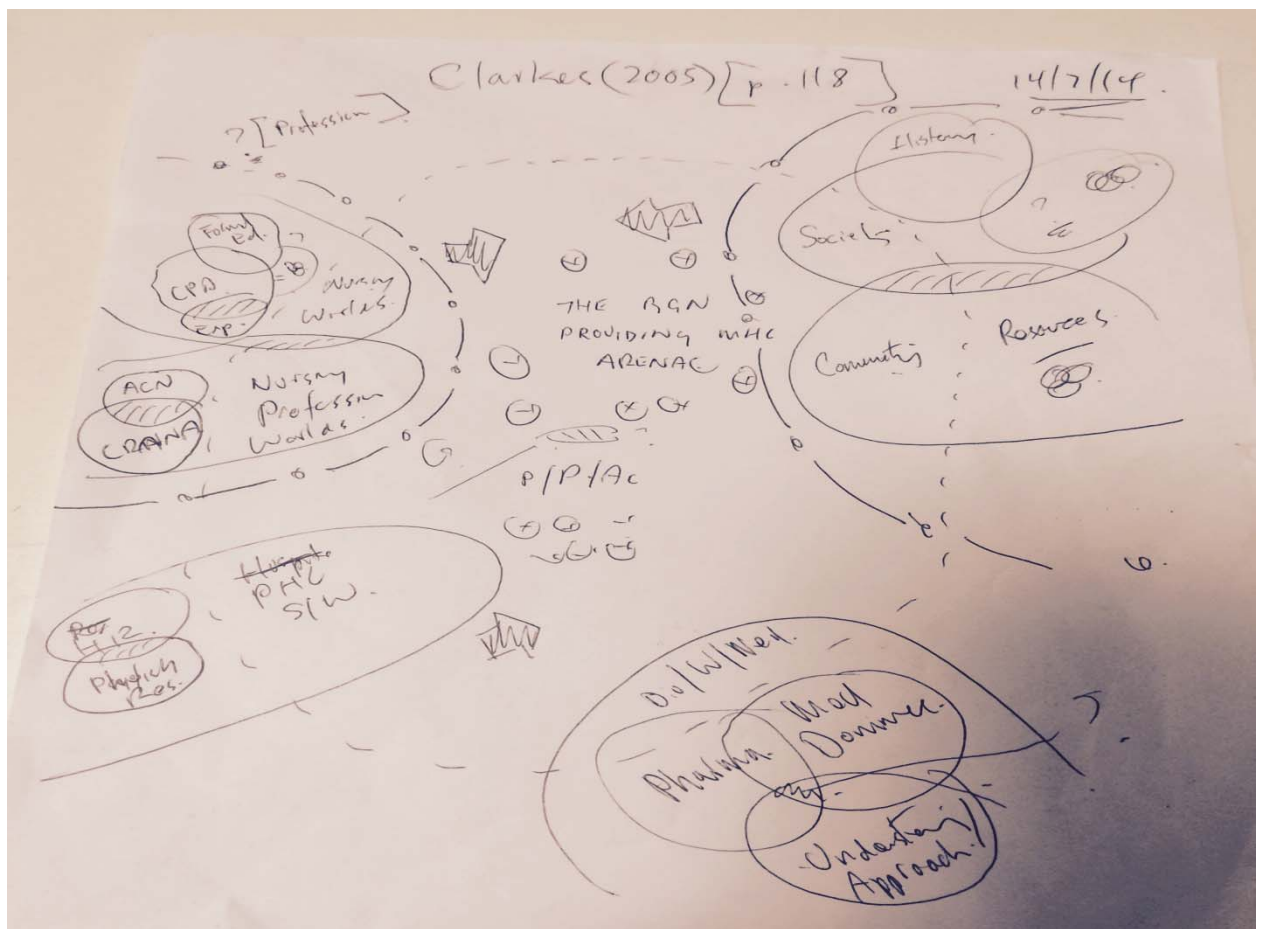 Clarkes (2005) [p. 118]
14/7/14.
? [Profession]
Formal
Ed.
CPD
?
Exp.
Nursing
Worlds.
ACN
CRANA
Nursing
Profession
Worlds
THE RGN
PROVIDING MHC
ARENAE
P/P/Ac
History.
Society
?
Community
Resources
PHC
S/W.
Physich
Res.
D.o/W/Med.
Pharma.
Med
Dominec.
Understanding/
Approach.
?